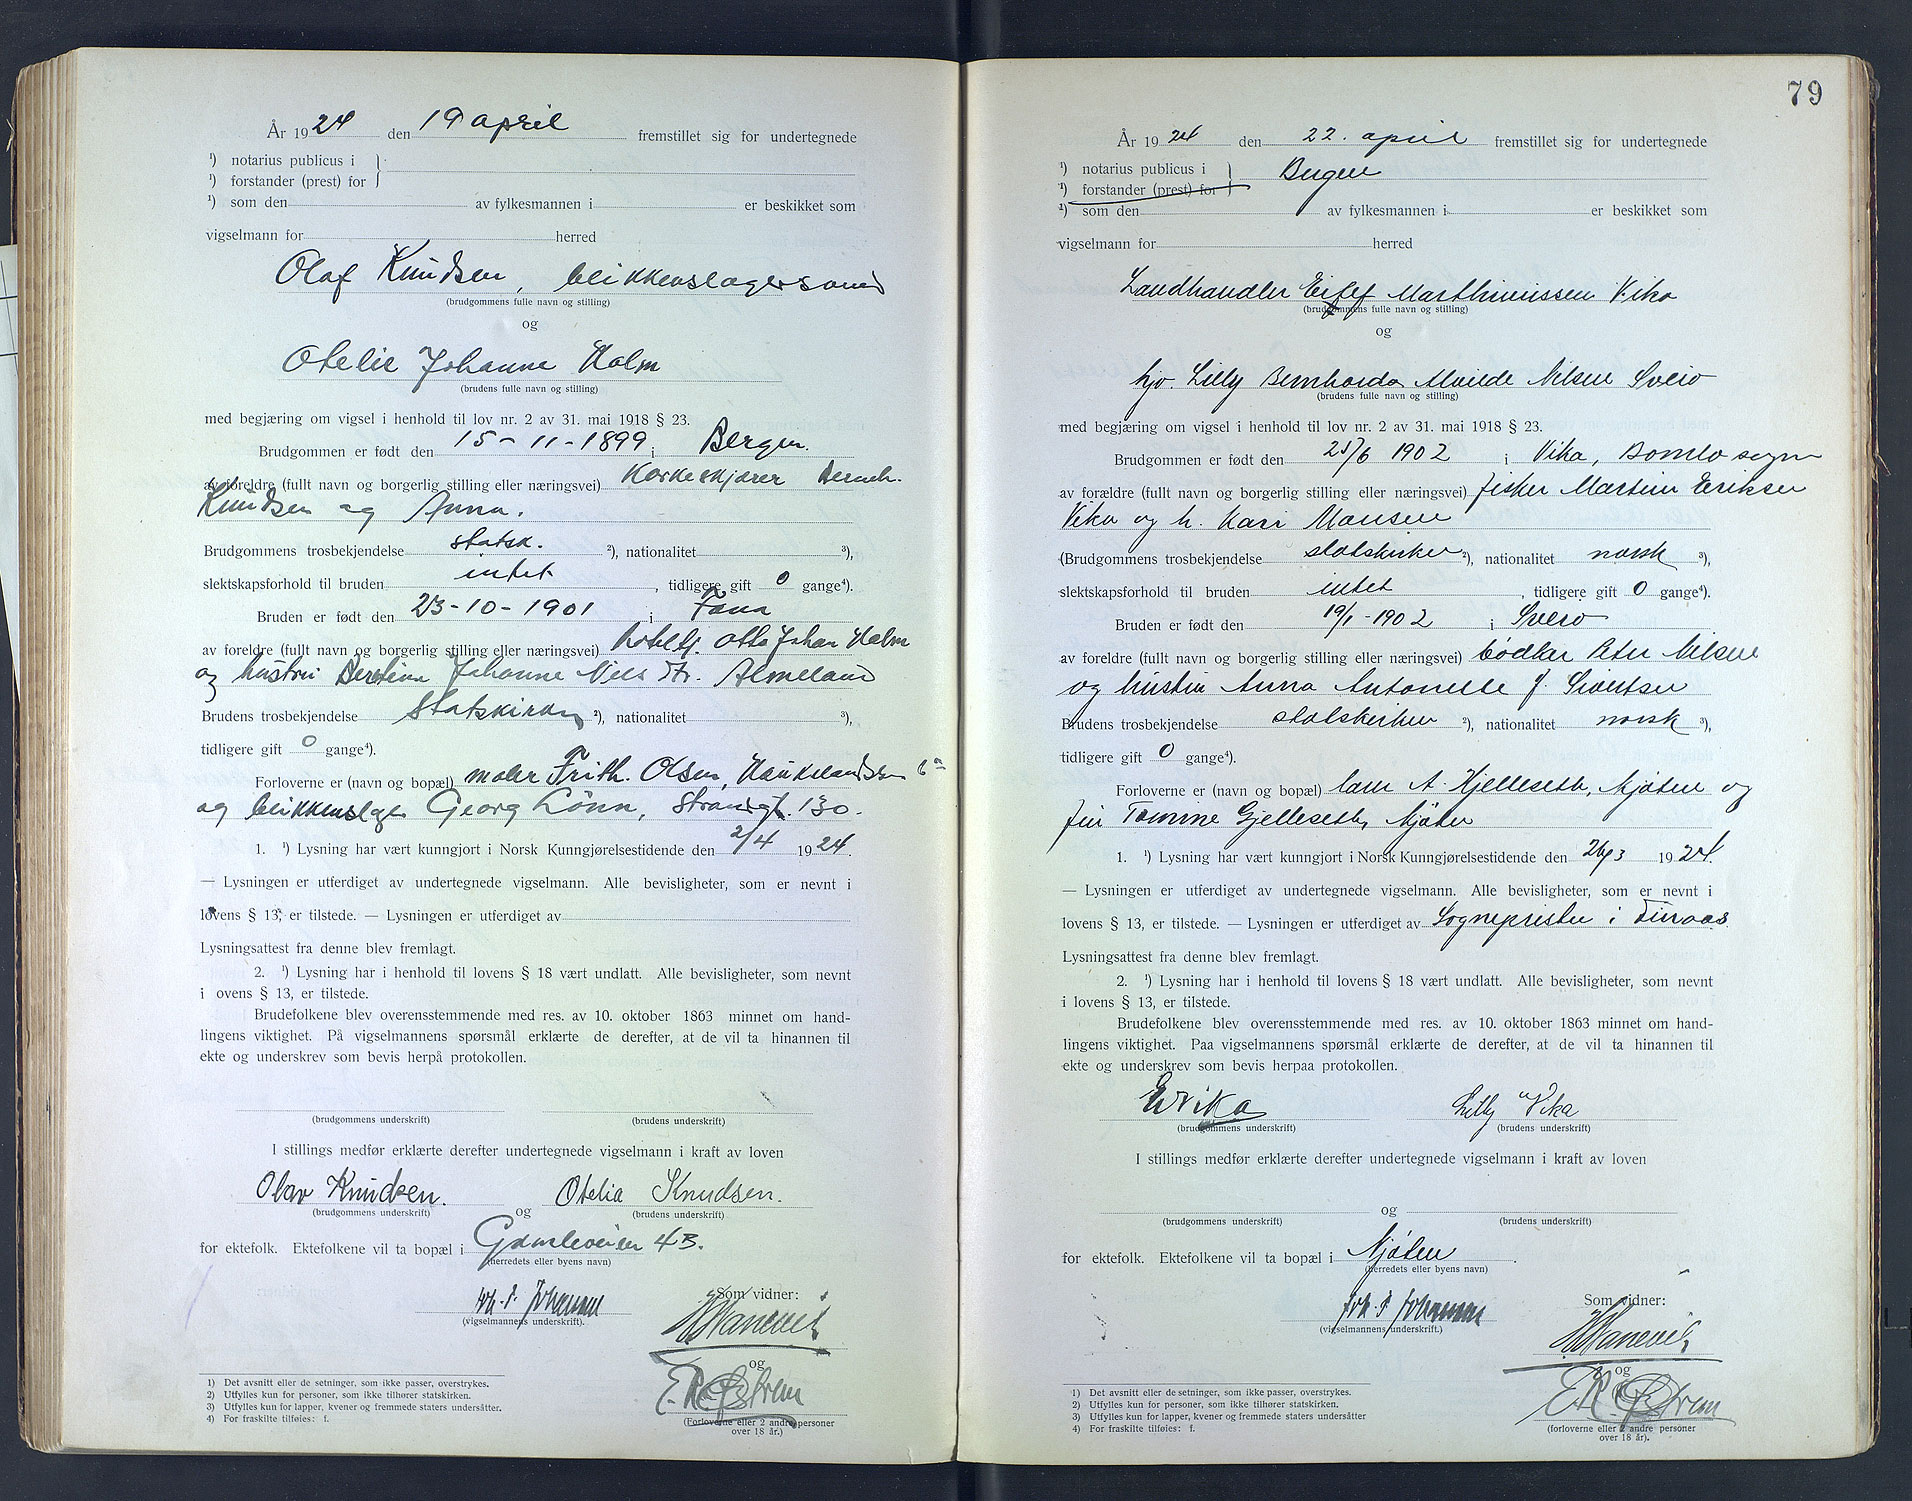 År 1924 den 19 april fremstillet sig for undertegnede
¹) notarius publicus i
¹) forstander (prest) for
¹) som den av fylkesmannen i er beskikket som
vigselmann for herred
Olaf Knudsen, blikkenslagersvend
(brudgommens fulle navn og stilling)
og
Otelie Johanne Holm
(brudens fulle navn og stilling)
med begjæring om vigsel i henhold til lov nr. 2 av 31. mai 1918 § 23.
Brudgommen er født den 15-11-1899 i Bergen.
av foreldre (fullt navn og borgerlig stilling eller næringsvei) Korkeskjærer Bernh.
Knudsen og Anna.
Brudgommens trosbekjendelse statsk. ²), nationalitet ³),
slektskapsforhold til bruden intet, tidligere gift 0 gange⁴).
Bruden er født den 23-10-1901 i Fana
av foreldre (fullt navn og borgerlig stilling eller næringsvei) Otto Johan Holm
og hustru Bertine Johanne Nils dtr. Almeland
Brudens trosbekjendelse Statskirken ²), nationalitet ³),
tidligere gift 0 gange⁴).
Forloverne er (navn og bopæl) maler Frith. Olsen, Haukelandsvn 6
og blikkenslager Georg Lönn, Strandgt. 130.
1. ¹) Lysning har vært kunngjort i Norsk Kunngjørelsestidende den 2/4 1924.
— Lysningen er utferdiget av undertegnede vigselmann. Alle bevisligheter, som er nevnt i
lovens § 13, er tilstede. — Lysningen er utferdiget av
Lysningsattest fra denne blev fremlagt.
2. ¹) Lysning har i henhold til lovens § 18 vært undlatt. Alle bevisligheter, som nevnt
i ovens § 13, er tilstede.
Brudefolkene blev overensstemmende med res. av 10. oktober 1863 minnet om hand-
lingens viktighet. På vigselmannens spørsmål erklærte de derefter, at de vil ta hinannen til
ekte og underskrev som bevis herpå protokollen.
(brudgommens underskrift) (brudens underskrift)
I stillings medfør erklærte derefter undertegnede vigselmann i kraft av loven
Olav Knudsen. og Otelia Knudsen.
(brudgommens underskrift) (brudens underskrift)
for ektefolk. Ektefolkene vil ta bopæl i Gamleveien 4B.
(herredets eller byens navn)
Som vidner:
Joh. P. Johannes
(vigselmannens underskrift).
og
(Forloverne eller 2 andre personer
over 18 år.)
1) Det avsnitt eller de setninger, som ikke passer, overstrykes.
2) Utfylles kun for personer, som ikke tilhører statskirken.
3) Utfylles kun for lapper, kvener og fremmede staters undersåtter.
4) For fraskilte tilføies: f.
79
År 1924 den 22. april fremstillet sig for undertegnede
¹) notarius publicus i Bergen
¹) forstander (prest) for
¹) som den av fylkesmannen i er beskikket som
vigselmann for herred
Landhandler Eilef Marthinussen Vika
(brudgommens fulle navn og stilling)
og
hjv. Lilly Bernharda Alvilde Nilsen Sveio
(brudens fulle navn og stilling)
med begjæring om vigsel i henhold til lov nr. 2 av 31. mai 1918 § 23.
Brudgommen er født den 25/6 1902 i Vika, Bømlo sogn
av forældre (fullt navn og borgerlig stilling eller næringsvei) fisker Martin Eriksen
Vika og h. Kari Mansen
(Brudgommens trosbekjendelse statskirken ²), nationalitet norsk ³),
slektskapsforhold til bruden intet, tidligere gift 0 gange⁴).
Bruden er født den 19/1-1902 i Sveio
av foreldre (fullt navn og borgerlig stilling eller næringsvei) bødker Peter Nilsen
og hustru Anna Antonette J. Sivertsen
Brudens trosbekjendelse statskirken ²), nationalitet norsk ³),
tidligere gift 0 gange⁴).
Forloverne er (navn og bopæl) Lars A. Hjelleseth, Mjåten og
fru Tomine Gjelleseth, Mjåten
1. ¹) Lysning har vært kunngjort i Norsk Kunngjørelsestidende den 26/3 1924.
— Lysningen er utferdiget av undertegnede vigselmann. Alle bevisligheter, som er nevnt i
lovens § 13, er tilstede. — Lysningen er utferdiget av Sognepresten i Finnaas
Lysningsattest fra denne blev fremlagt.
2. ¹) Lysning har i henhold til lovens § 18 vært undlatt. Alle bevisligheter, som nevnt
i lovens § 13, er tilstede.
Brudefolkene blev overensstemmende med res. av 10. oktober 1863 minnet om hand-
lingens viktighet. Paa vigselmannens spørsmål erklærte de derefter, at de vil ta hinannen til
ekte og underskrev som bevis herpaa protokollen.
E Vika Lilly Vika
(brudgommens underskrift) (brudens underskrift)
I stillings medfør erklærte derefter undertegnede vigselmann i kraft av loven
og
(brudgommens underskrift) (brudens underskrift)
for ektefolk. Ektefolkene vil ta bopæl i Mjåten.
(herredets eller byens navn)
Som vidner:
Joh. P. Johannes
(vigselmannens underskrift.)
og
(forloverne eller 2 andre personer
over 18 år).
1) Det avsnitt eller de setninger, som ikke passer, overstrykes.
2) Utfylles kun for personer, som ikke tilhører statskirken.
3) Utfylles kun for lapper, kvener og fremmede staters undersåtter
4) For fraskilte tilføies: f.